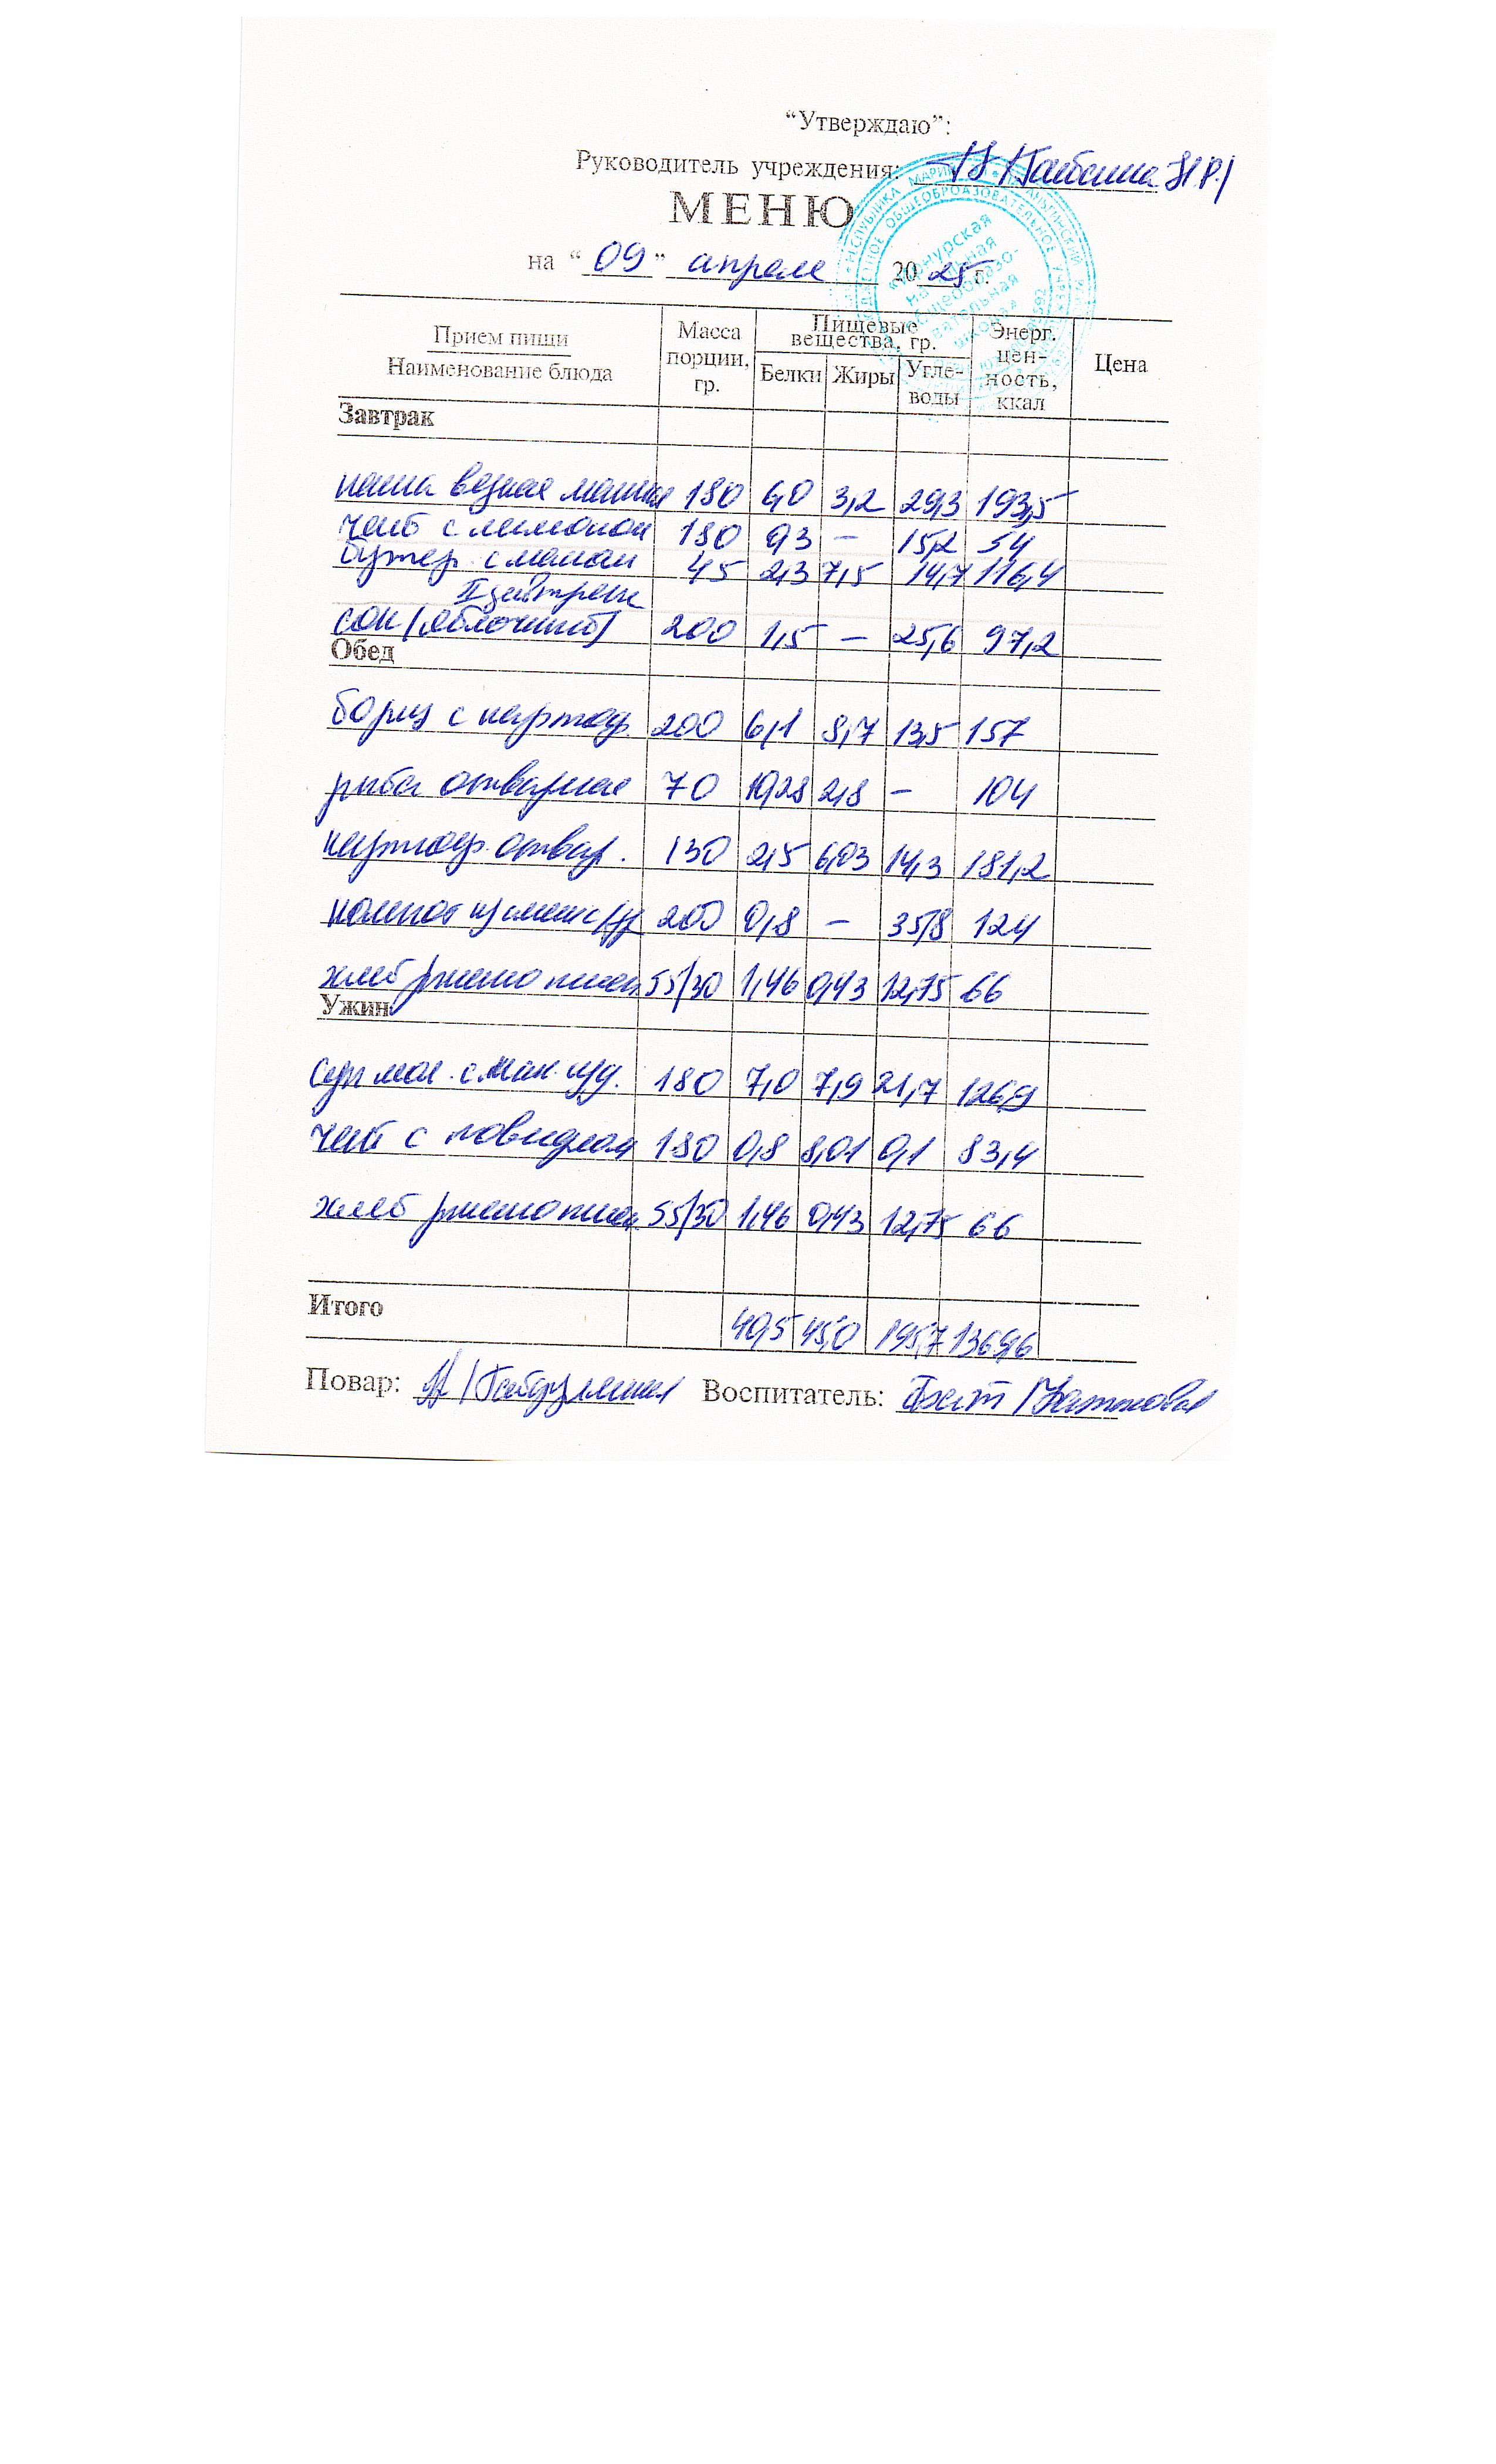 “Утверждаю”:
Руководитель учреждения:
МЕНЮ
на “09” апреля 2025 г.
Прием пищи
Наименование блюда
Масса порции, гр.
Пищевые вещества, гр.
Белки Жиры Угле-воды
Энерг. цен-ность, ккал
Цена
Завтрак
каша вязкая манная 180 6,0 3,2 29,3 193,5
чай с лимоном 180 0,3 – 15,2 54
бутер. с маслом 45 2,3 7,5 14,7 116,4
II завтрак
сок (яблочный) 200 1,5 – 25,6 97,2
Обед
борщ с картоф. 200 6,1 8,7 13,5 157
рыба отварная 70 10,28 2,8 – 104
картоф. отвар. 130 2,5 6,03 14,3 181,2
компот из смеси с/фр 200 0,8 – 35,8 124
хлеб ржано пшен 55/30 1,46 0,43 12,75 66
Ужин
суп мол. с мак. изд. 180 7,0 7,9 21,7 126,9
чай с повидлом 180 0,8 8,01 0,1 83,4
хлеб ржано пшен. 55/30 1,46 0,43 12,75 66
Итого 40,5 45,0 195,7 1369,6
Повар: Воспитатель: